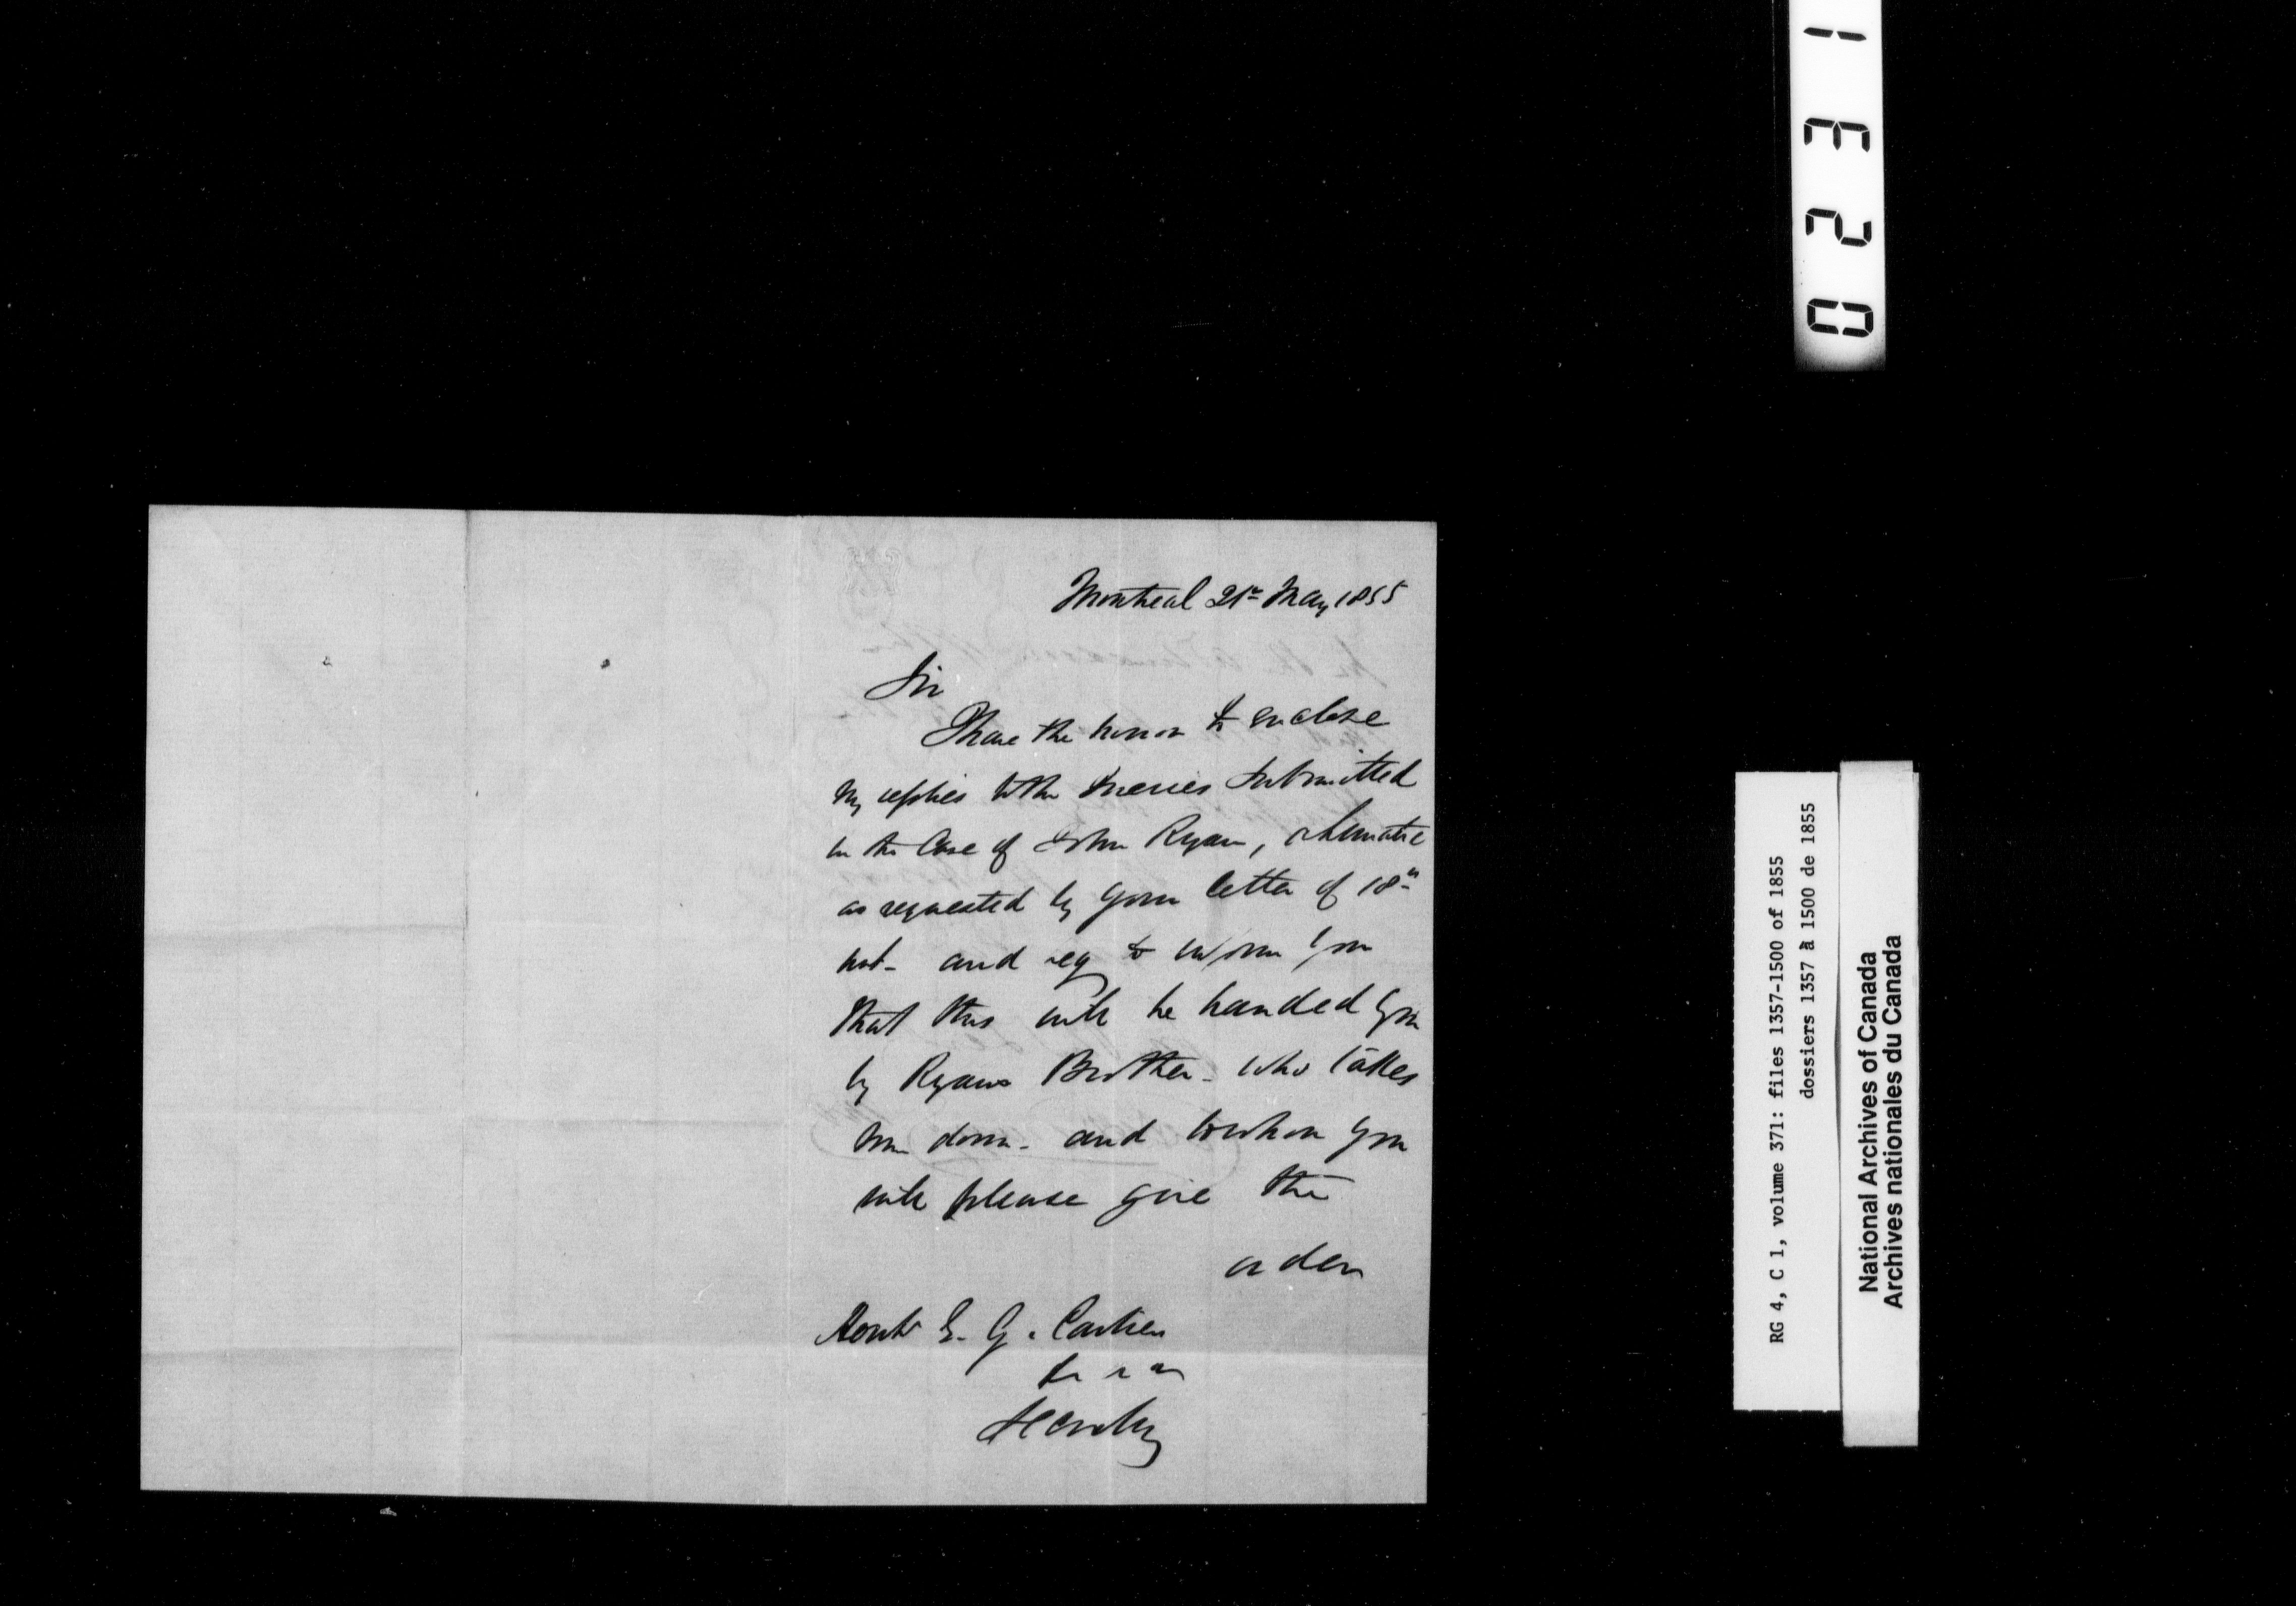 Montreal 21st May 1855
Sir
I have the honor to enclose
my replies to the Queries Submitted
in the Case of John Ryan, a Lunatic
as requested by your letter of 18th
inst- and beg to inform you
that this will be handed you
by Ryans Brother - who takes
him down - and to whom you
will please give the
order
Honble G. E. Cartier
&c &c &c
Secretary
0231
RG 4, C 1, volume 371: files 1357-1500 of 1855
dossiers 1357 à 1500 de 1855
National Archives of Canada
Archives nationales du Canada